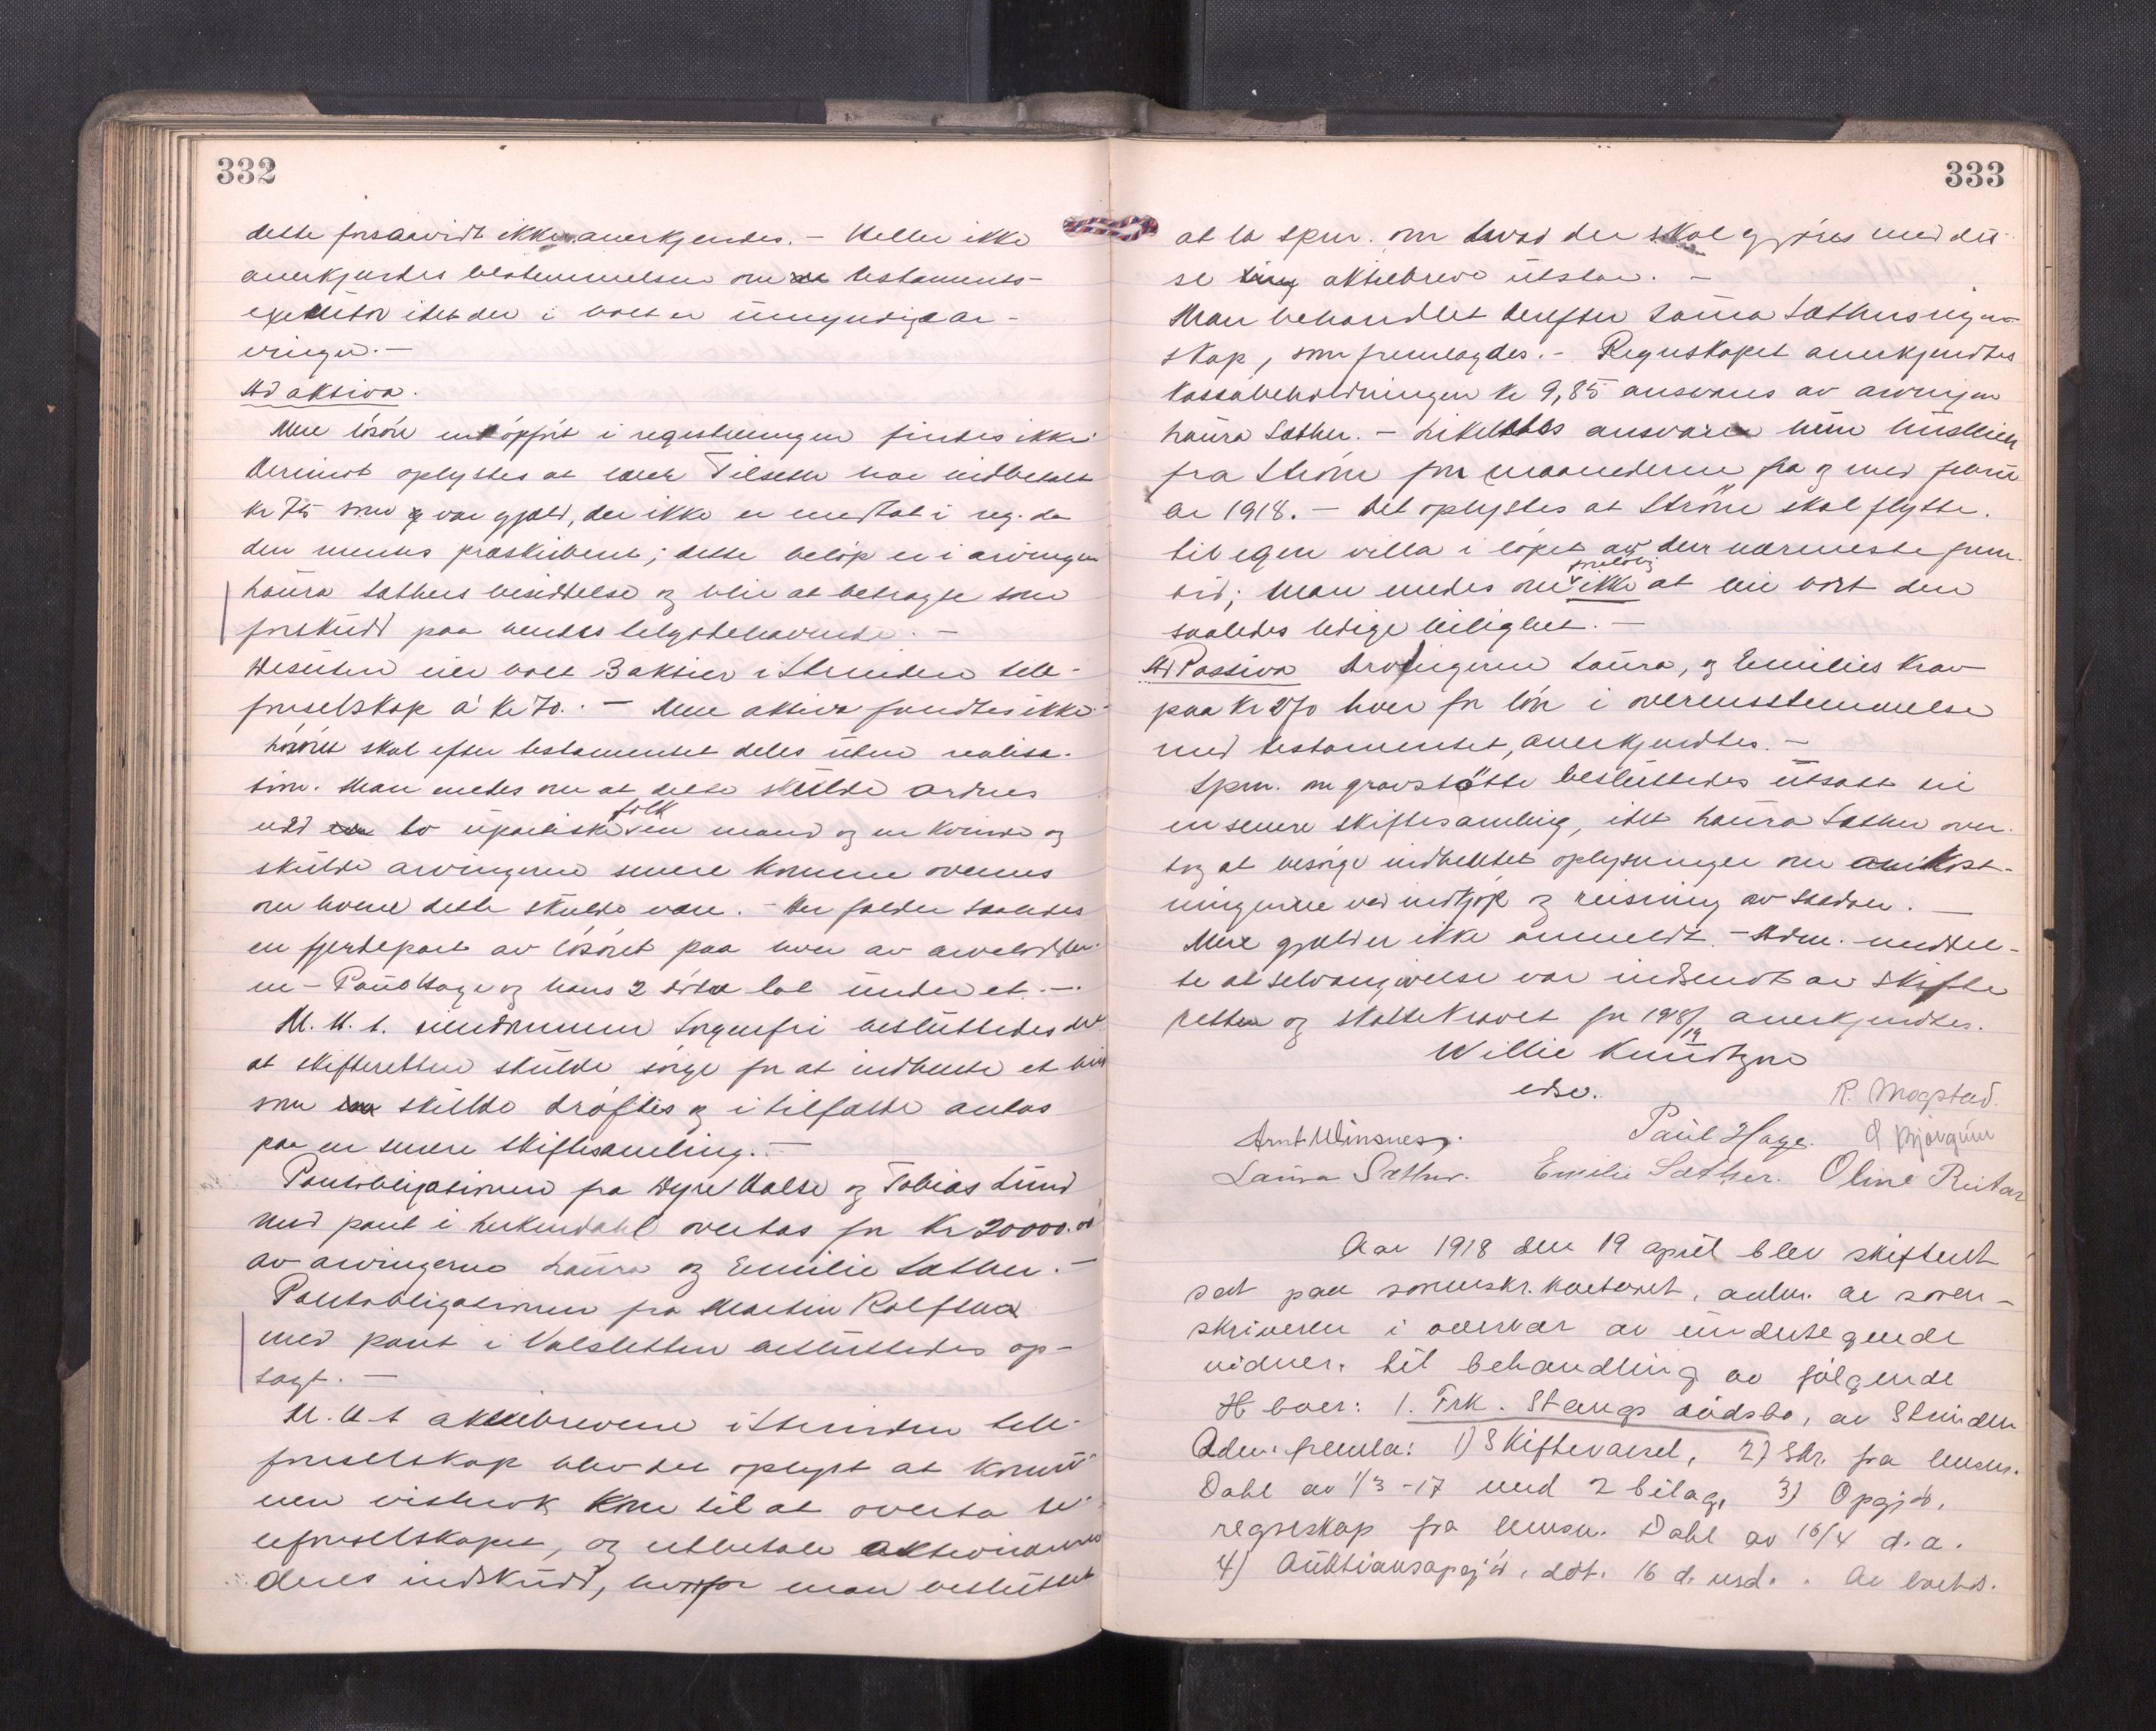 332
dette forsaavidt ikke anerkjendes. - Heller ikke
anerkjendtes bestemmelsen om testaments-
exekutor idet der i boet er umyndige ar-
vinger. -
Ad aktiva.
Mere lösöre end opfört i registreringen findes ikke.
Derimot oplystes at Tilseth har indbetalt
kr 75 som var gjæld, der ikke er medtat i reg. da
den mentes præskribert; dette belöp er i arvingen
Laura Sæthers besiddelse og blir at betragte som
forskud paa hendes tilgodehavende. -
Desuten eier boet 3 aktier i Strinden tele-
fonselskap á kr 70. - Mere aktiva fandtes ikke.
Lösöret skal efter testamentet deles uten realisa-
tion. Man enedes om at dette skulde ordnes
ved to upartiske folk en mand og en kvinde og
skulde arvingerne senere komme overens
om hvem dette skulde være. - Der falder saaledes
en fjerdepart av lösöret paa hver av arvelodder-
ne - Paul Hage og hans 2 lod under et. -
M. H. t. eiendommen Sorgenfri besluttedes det
at skifteretten skulde sörge for at indhente et bud
som skulde dröftes og i tilfælde antas
paa en senere skiftesamling. -
Pantobligationen fra Dyre Halse og Tobias Lund
med pant i Leikendahl overtas for Kr 20000.00
av arvingerne Laura og Emilie Sæther. -
Pantobligationen fra Martin Rolfsen
med pant i Valsletten besluttedes op-
sagt. -
M. H. t. aktiebrevene i Strinden tele-
fonselskap blev det oplyst at kommu-
nen vistnok kom til at overta te-
lefonselskapet, og utbetale aktionærerne
deres indskudd, hvorfor man besluttet
333
at la spm. om hvad der skal gjöres med dis-
se aktiebreve utstaa. -
Man behandlet derefter Laura Sæthers regn-
skap, som fremlagdes. - Regnskapet anerkjendtes
Kassabeholdningen kr 9,85 ansvares av arvingen
Laura Sæther. - Likeledes ansvarer hun husleien
fra Ström for maanederne fra og med febru-
ar 1918. - Det oplystes at Ström skal flytte
til egen villa i löpet av den nærmeste frem-
tid; man enedes om foreløbig ikke at leie bort den
saaledes ledige leilighet. -
Ad Passiva Arvingerne Laura, og Emilies krav
paa kr 270 hver for lön i overensstemmelse
med testamentet, anerkjendtes. -
Spm. om gravstötte besluttedes utsatt til
en senere skiftesamling, idet Laura Sæther over-
tog at besörge indhentet oplysninger om omkost-
ningerne ved indkjöp og reisning av saadan. -
Mere gjæld er ikke anmeldt. - Adm. meddel-
te at selvangivelse var indsendt av skifte
retten og skattekravet for 1918/19 anerkjendtes.
Willie Knudtzon
edsv.
R. Mogstad.
Arnt Winsnes. Paul Hage. O Bjørgum
Laura Sæther. Emilie Sæther. Oline Reitan
Aar 1918 den 19 april blev skifteret
sat paa sorenskr. kontoret, adm. av soren-
skriveren i overvær av undertegnede
vidner, til behandling av følgende
H boer: 1. Frk. Stangs dödsbo, av Strinden
Adm. fremla: 1) Skiftevarsel, 2) Skr. fra lensm.
Dahl av 1/3 -17 med 2 bilag, 3) Opgjö.
regnskap fra lensm. Dahl av 16/4 d. a.
4) Auktionsopgjö, dat. 16 d. msd. . Av boets